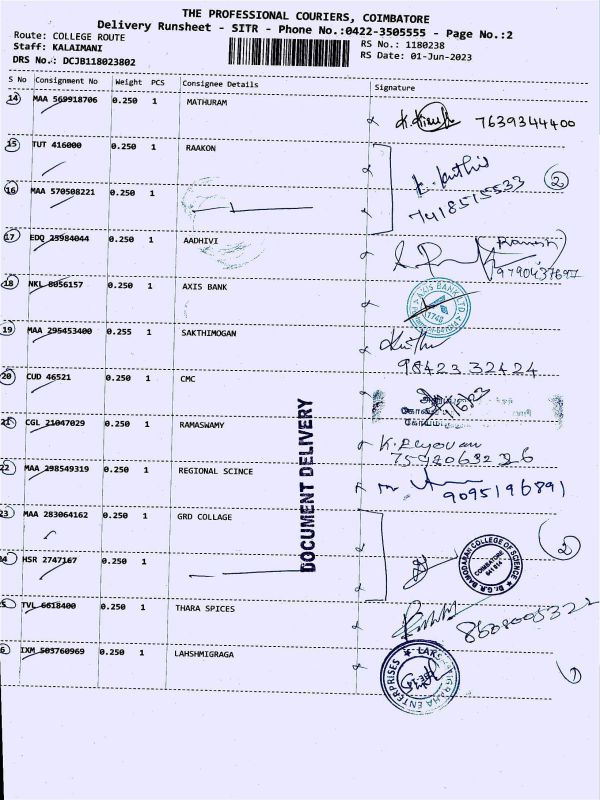 THE PROFESSIONAL COURIERS, COIMBATORE
Delivery Runsheet - SITR - Phone No.:0422-3505555 - Page No.:2
Route: COLLEGE ROUTE
RS No.: 1180238
Staff: KALAIMANI
RS Date: 01-Jun-2023
DRS No.: DCJB118023802
S No Consignment No Weight PCS Consignee Details Signature
14 MAA 569918706 0.250 1 MATHURAM 7639344400
15 TUT 416000 0.250 1 RAAKON
16 MAA 570508221 0.250 1 7418515533 2
17 EDQ 25984044 0.250 1 AADHIVI 9790437697
18 NKL 8056157 0.250 1 AXIS BANK AXIS BANK LTD
19 MAA 295453400 0.255 1 SAKTHIMOGAN 98423 32424
20 CUD 46521 0.250 1 CMC
21 CGL 21047029 0.250 1 RAMASWAMY
22 MAA 298549319 0.250 1 REGIONAL SCINCE 9095196891
23 MAA 283064162 0.250 1 GRD COLLAGE
24 HSR 2747167 0.250 1 Dr. G.R. DAMODARAN COLLEGE OF SCIENCE COIMBATORE 641 014 2
TVL 6618400 0.250 1 THARA SPICES
IXM 503760969 0.250 1 LAHSHMIGRAGA ENTERPRISES
DOCUMENT DELIVERY